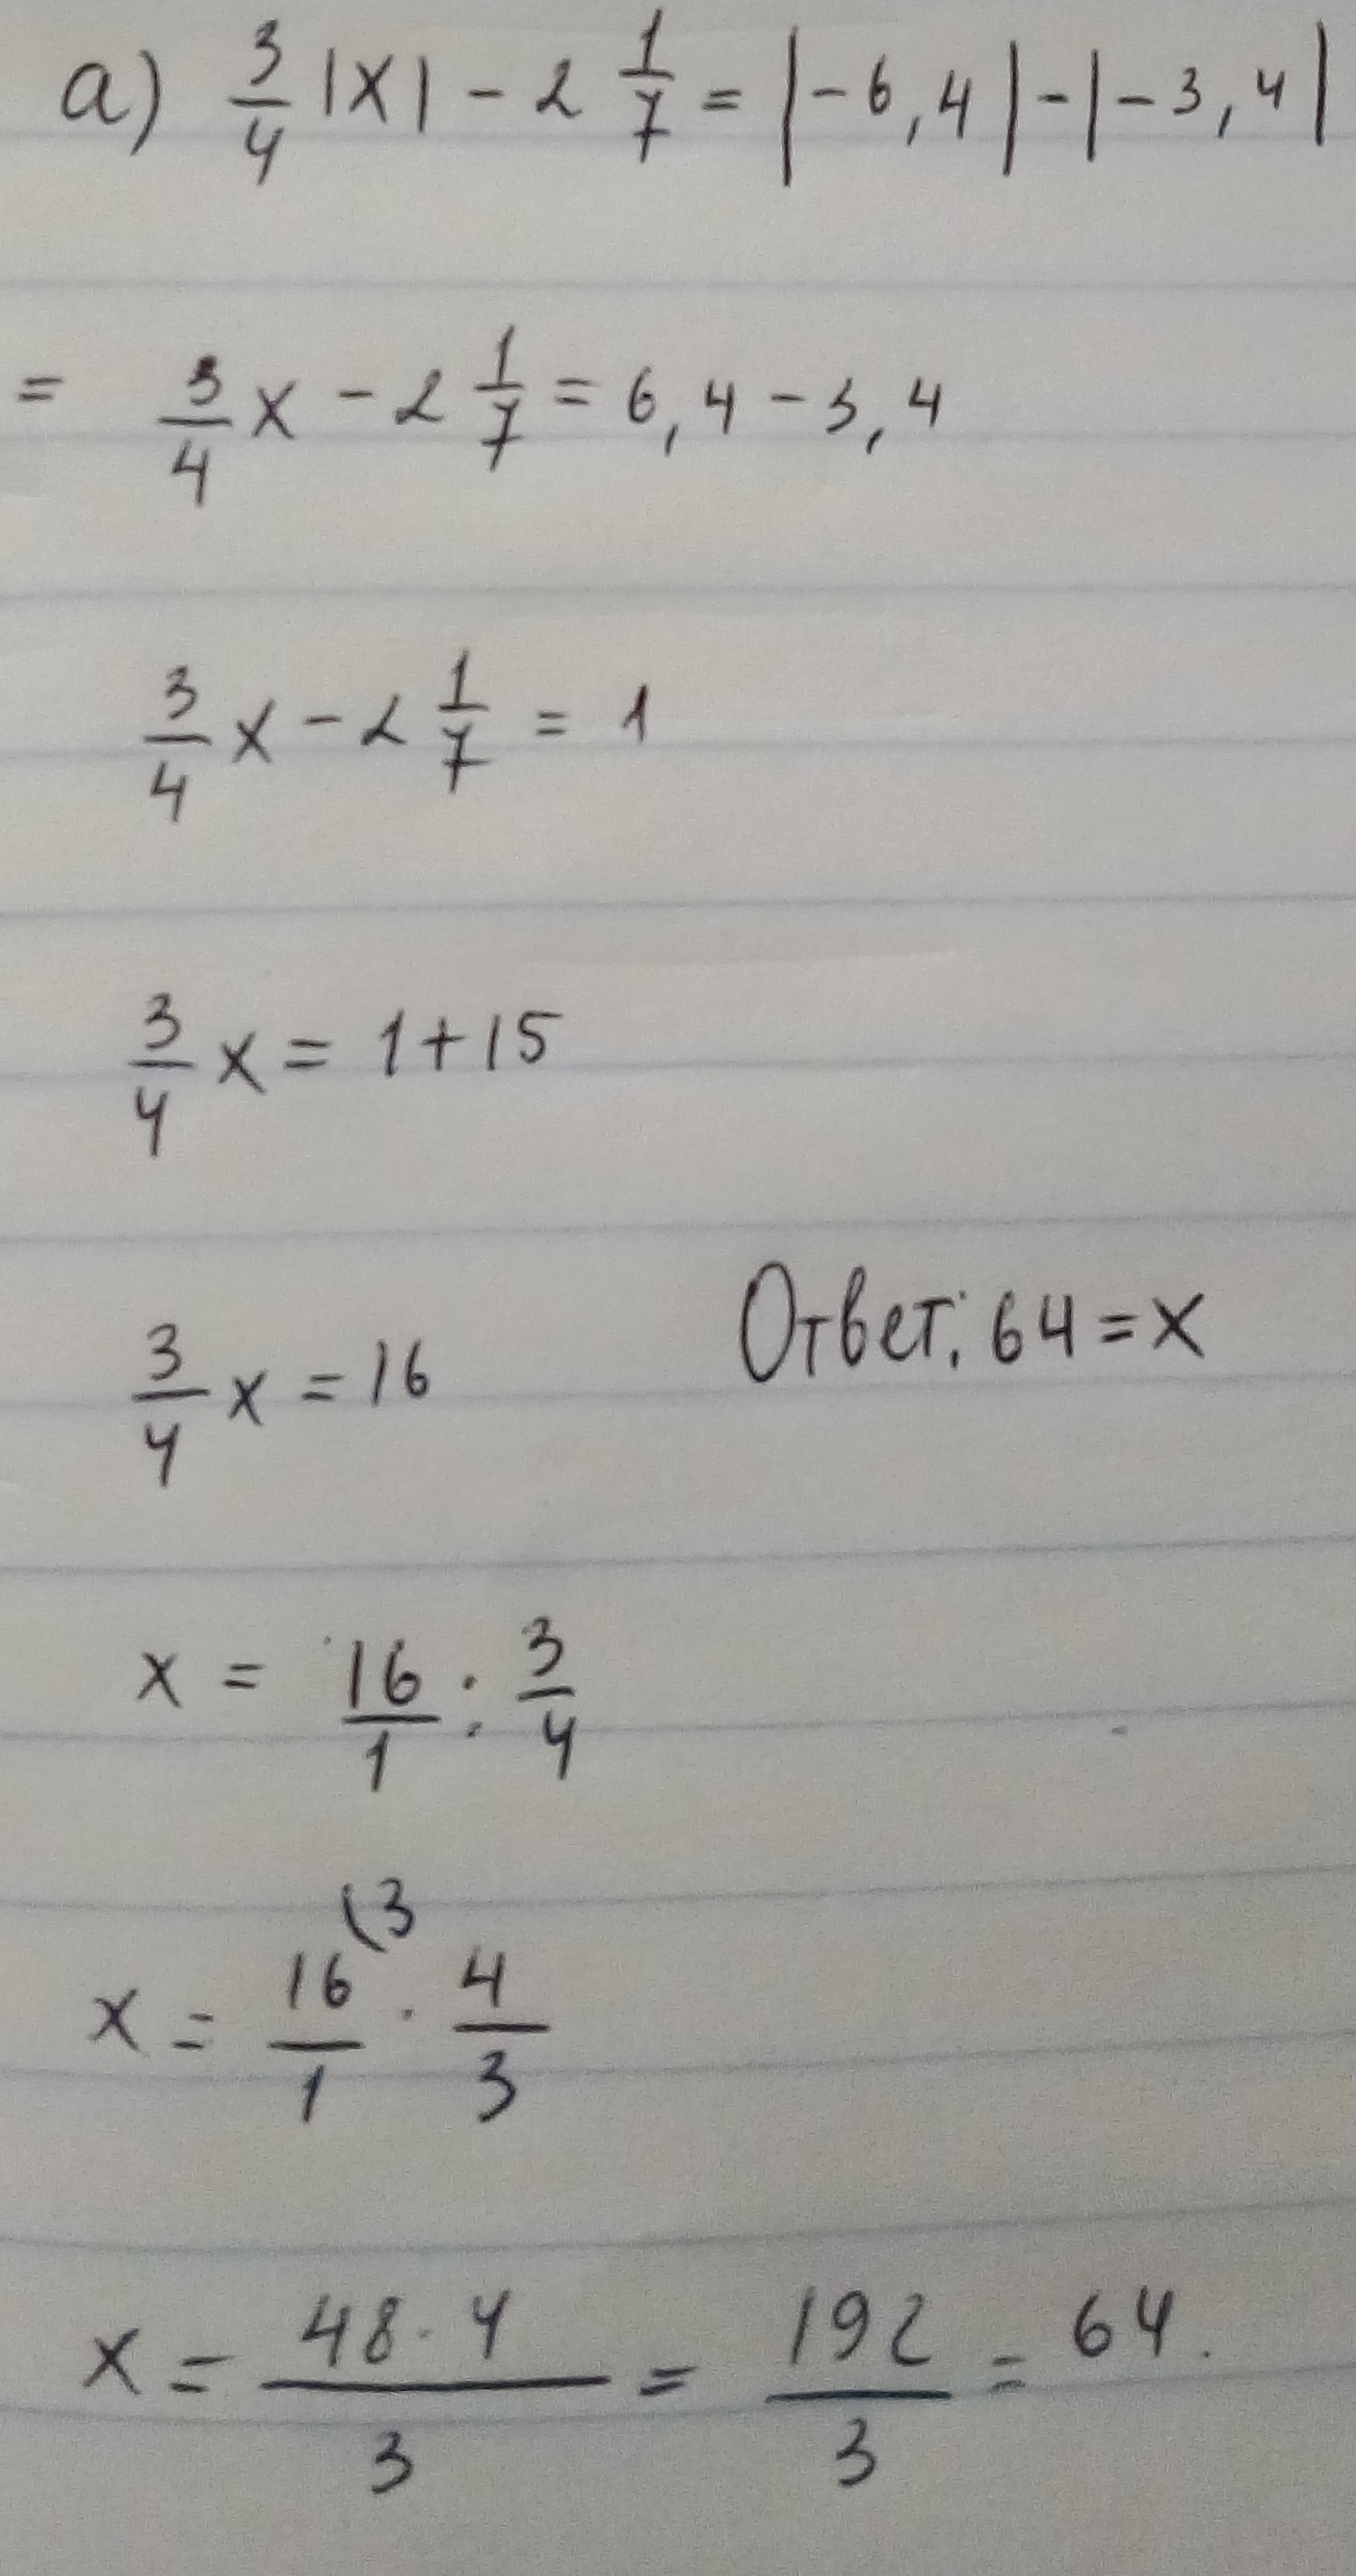 а) 3/4 |x| - 2 1/7 = |-6,4| - |-3,4|
= 3/4 x - 2 1/7 = 6,4 - 3,4
3/4 x - 2 1/7 = 1
3/4 x = 1 + 15
3/4 x = 16
Ответ: 64 = x
x = 16/1 : 3/4
x = 16(3/1 · 4/3
x = 48 · 4/3 = 192/3 = 64.